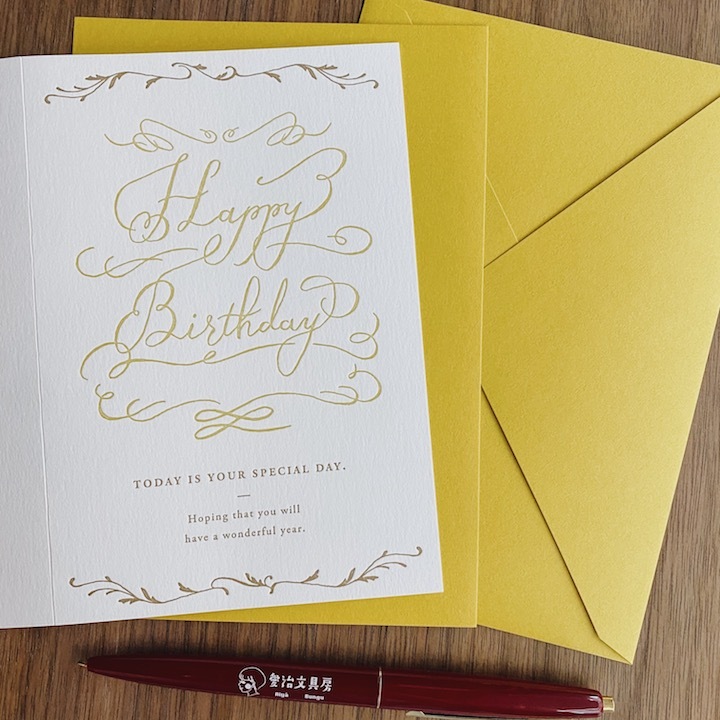 Happy
Birthday
TODAY IS YOUR SPECIAL DAY.
Hoping that you will
have a wonderful year.
文具房
Bungu